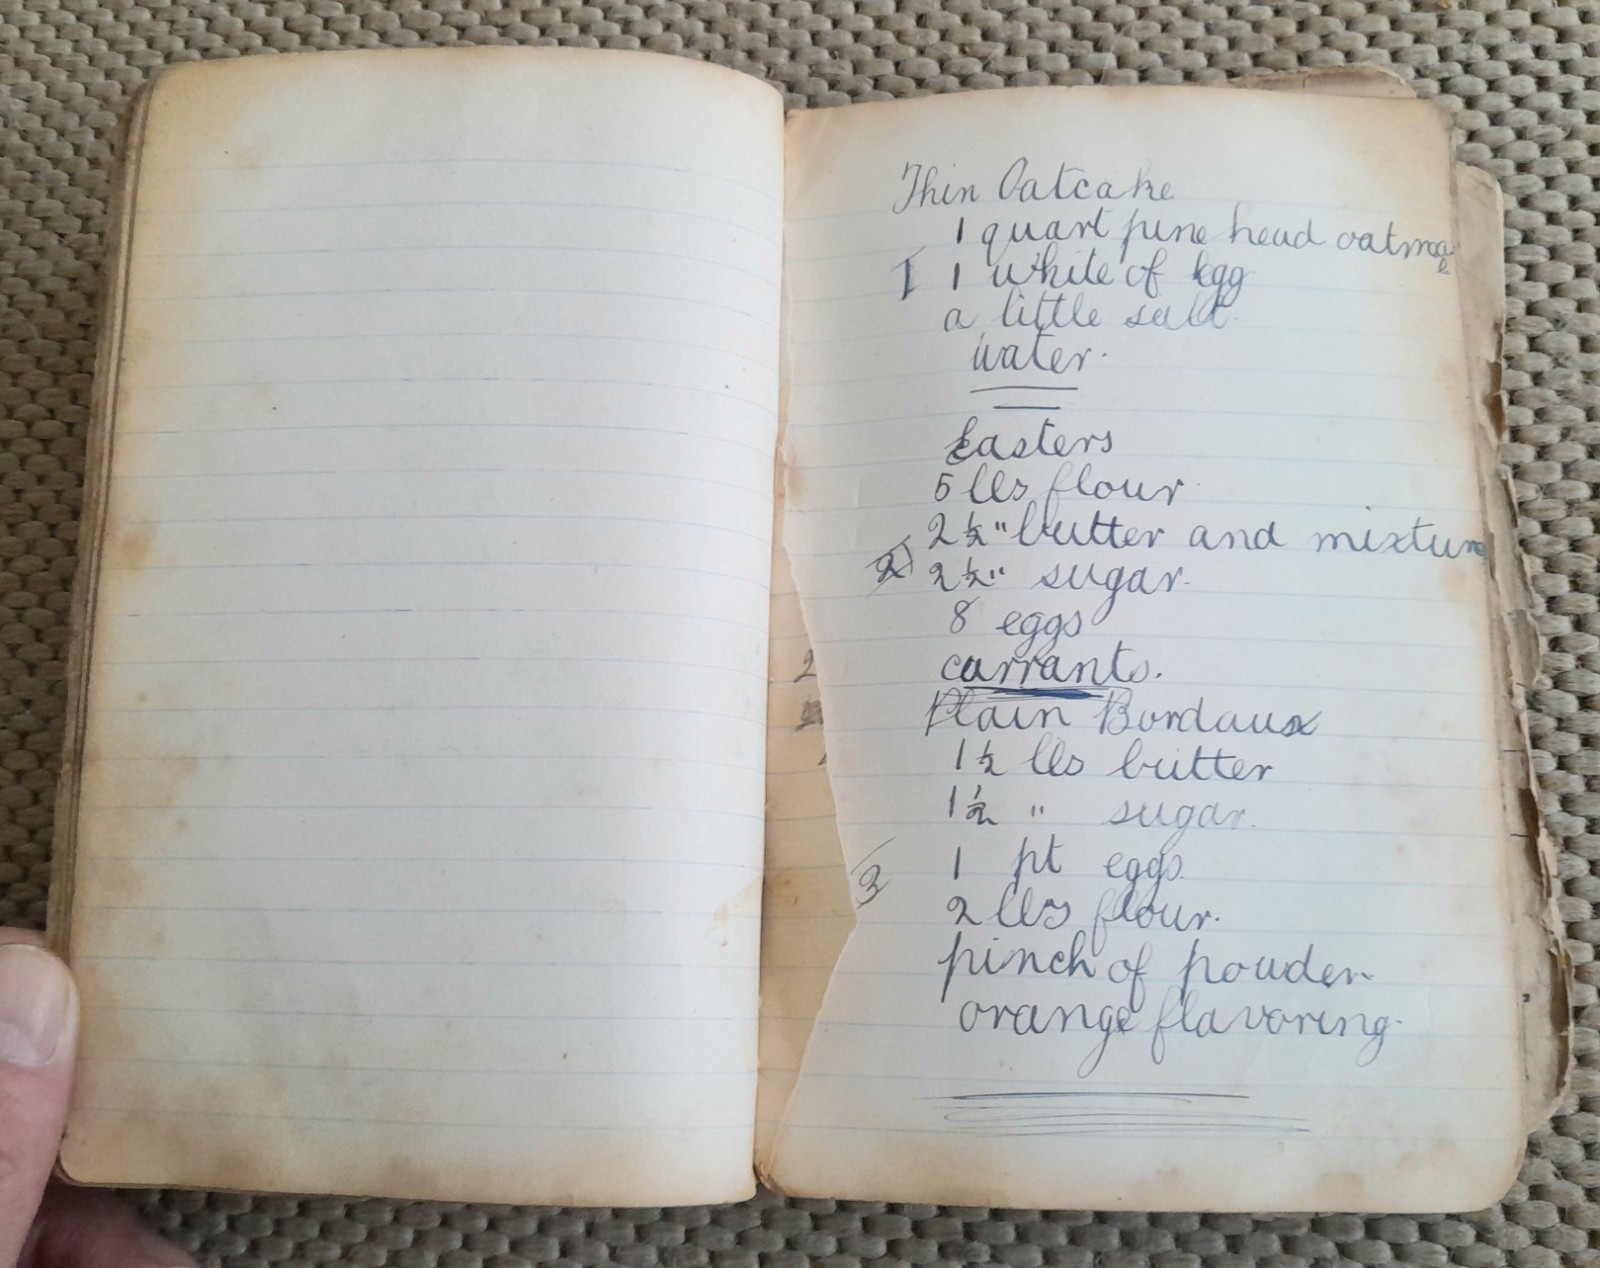 Thin Oatcake
1 quart pine head oatmeal
1 1 white of egg
a little salt.
water.
Easters
5 lbs flour
2½ " butter and mixture
2 2½ " sugar.
8 eggs
carrants.
Plain Bordaux
1½ lbs butter
1½ " sugar.
1 pt eggs.
3
2 lbs flour.
pinch of powder
orange flavoring.
2